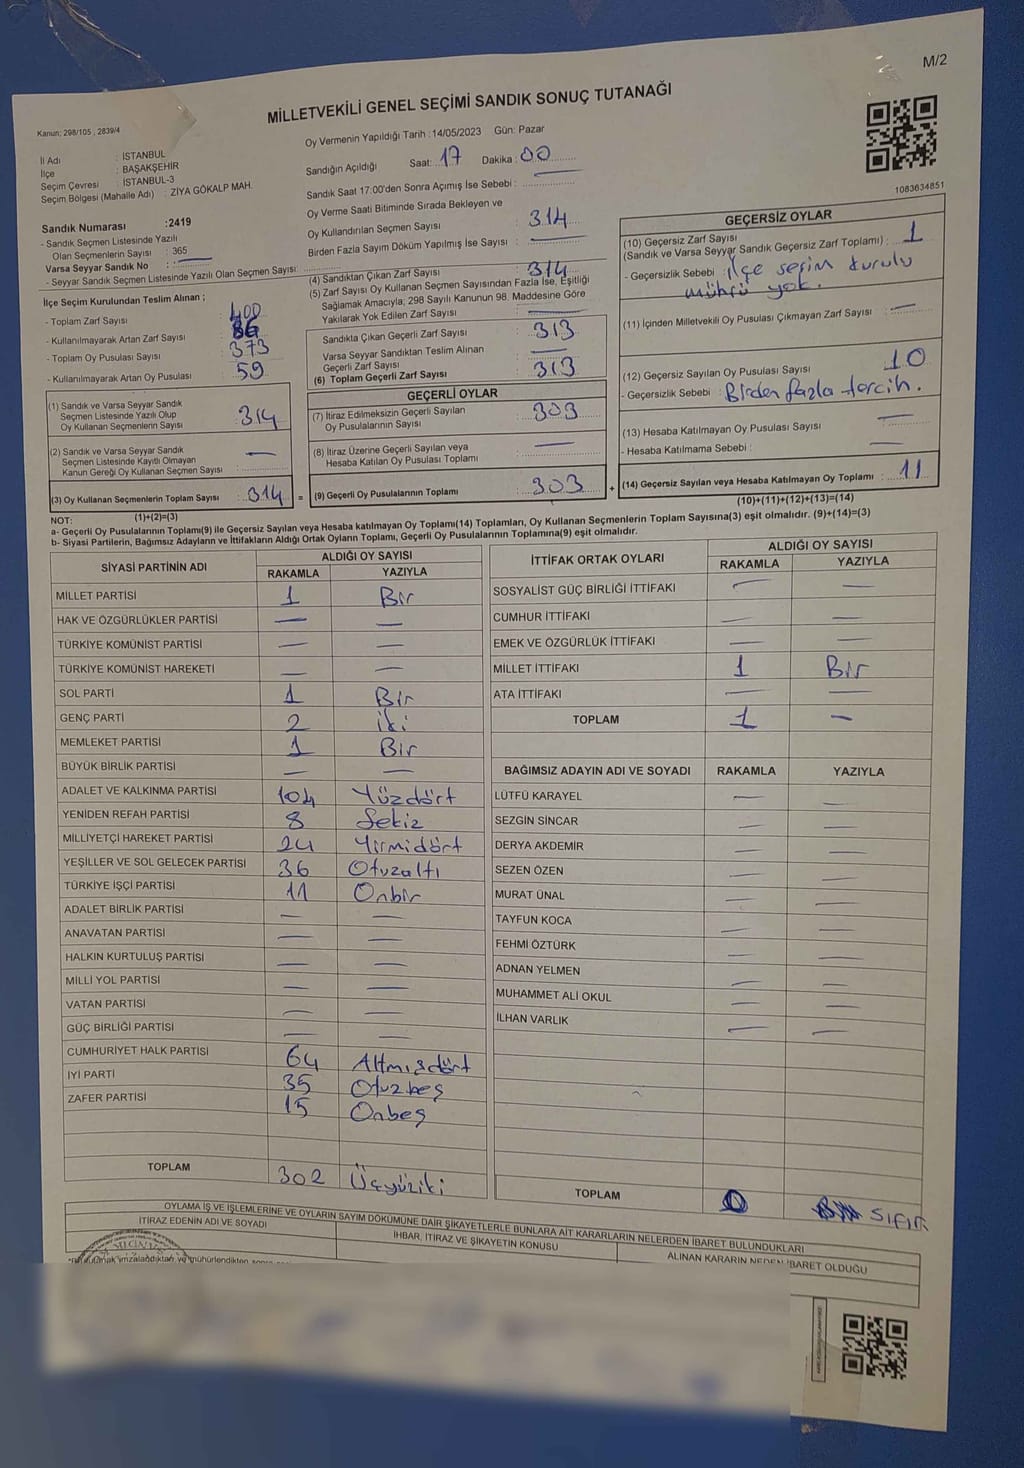 M/2
MİLLETVEKİLİ GENEL SEÇİMİ SANDIK SONUÇ TUTANAĞI
Kanun: 298/105 , 2839/4
İl Adı : İSTANBUL
İlçe : BAŞAKŞEHİR
Seçim Çevresi : İSTANBUL-3
Seçim Bölgesi (Mahalle Adı) : ZİYA GÖKALP MAH.
Oy Vermenin Yapıldığı Tarih : 14/05/2023 Gün: Pazar
Sandığın Açıldığı Saat: 17 Dakika : 00
Sandık Saat 17:00'den Sonra Açımış İse Sebebi :
Oy Verme Saati Bitiminde Sırada Bekleyen ve
Oy Kullandırılan Seçmen Sayısı : 314
Birden Fazla Sayım Döküm Yapılmış İse Sayısı : —
1083634851
Sandık Numarası :2419
- Sandık Seçmen Listesinde Yazılı
Olan Seçmenlerin Sayısı : 365
Varsa Seyyar Sandık No : —
- Seyyar Sandık Seçmen Listesinde Yazılı Olan Seçmen Sayısı:
İlçe Seçim Kurulundan Teslim Alınan ;
- Toplam Zarf Sayısı : 400
- Kullanılmayarak Artan Zarf Sayısı : 86
- Toplam Oy Pusulası Sayısı : 373
- Kullanılmayarak Artan Oy Pusulası : 59
(1) Sandık ve Varsa Seyyar Sandık
Seçmen Listesinde Yazılı Olup
Oy Kullanan Seçmenlerin Sayısı : 314
(2) Sandık ve Varsa Seyyar Sandık
Seçmen Listesinde Kayıtlı Olmayan
Kanun Gereği Oy Kullanan Seçmen Sayısı : —
(3) Oy Kullanan Seçmenlerin Toplam Sayısı : 314
(1)+(2)=(3)
(4) Sandıktan Çıkan Zarf Sayısı : 314
(5) Zarf Sayısı Oy Kullanan Seçmen Sayısından Fazla İse, Eşitliği
Sağlamak Amacıyla; 298 Sayılı Kanunun 98. Maddesine Göre
Yakılarak Yok Edilen Zarf Sayısı : —
Sandıkta Çıkan Geçerli Zarf Sayısı : 313
Varsa Seyyar Sandıktan Teslim Alınan
Geçerli Zarf Sayısı : —
(6) Toplam Geçerli Zarf Sayısı : 313
GEÇERLİ OYLAR
(7) İtiraz Edilmeksizin Geçerli Sayılan
Oy Pusulalarının Sayısı : 303
(8) İtiraz Üzerine Geçerli Sayılan veya
Hesaba Katılan Oy Pusulası Toplamı : —
= (9) Geçerli Oy Pusulalarının Toplamı : 303 +
GEÇERSİZ OYLAR
(10) Geçersiz Zarf Sayısı
(Sandık ve Varsa Seyyar Sandık Geçersiz Zarf Toplamı) : 1
- Geçersizlik Sebebi : İlçe seçim kurulu
mührü yok.
(11) İçinden Milletvekili Oy Pusulası Çıkmayan Zarf Sayısı : —
(12) Geçersiz Sayılan Oy Pusulası Sayısı : 10
- Geçersizlik Sebebi : Birden fazla tercih.
(13) Hesaba Katılmayan Oy Pusulası Sayısı : —
- Hesaba Katılmama Sebebi : —
(14) Geçersiz Sayılan veya Hesaba Katılmayan Oy Toplamı : 11
(10)+(11)+(12)+(13)=(14)
NOT:
a- Geçerli Oy Pusulalarının Toplamı(9) ile Geçersiz Sayılan veya Hesaba katılmayan Oy Toplamı(14) Toplamları, Oy Kullanan Seçmenlerin Toplam Sayısına(3) eşit olmalıdır. (9)+(14)=(3)
b- Siyasi Partilerin, Bağımsız Adayların ve İttifakların Aldığı Ortak Oyların Toplamı, Geçerli Oy Pusulalarının Toplamına(9) eşit olmalıdır.
SİYASİ PARTİNİN ADI ALDIĞI OY SAYISI
RAKAMLA YAZIYLA
MİLLET PARTİSİ 1 Bir
HAK VE ÖZGÜRLÜKLER PARTİSİ — —
TÜRKİYE KOMÜNİST PARTİSİ — —
TÜRKİYE KOMÜNİST HAREKETİ — —
SOL PARTİ 1 Bir
GENÇ PARTİ 2 İki
MEMLEKET PARTİSİ 1 Bir
BÜYÜK BİRLİK PARTİSİ — —
ADALET VE KALKINMA PARTİSİ 104 Yüzdört
YENİDEN REFAH PARTİSİ 8 Sekiz
MİLLİYETÇİ HAREKET PARTİSİ 24 Yirmidört
YEŞİLLER VE SOL GELECEK PARTİSİ 36 Otuzaltı
TÜRKİYE İŞÇİ PARTİSİ 11 Onbir
ADALET BİRLİK PARTİSİ — —
ANAVATAN PARTİSİ — —
HALKIN KURTULUŞ PARTİSİ — —
MİLLİ YOL PARTİSİ — —
VATAN PARTİSİ — —
GÜÇ BİRLİĞİ PARTİSİ — —
CUMHURİYET HALK PARTİSİ 64 Altmışdört
İYİ PARTİ 35 Otuzbeş
ZAFER PARTİSİ 15 Onbeş
TOPLAM 302 Üçyüziki
İTTİFAK ORTAK OYLARI ALDIĞI OY SAYISI
RAKAMLA YAZIYLA
SOSYALİST GÜÇ BİRLİĞİ İTTİFAKI — —
CUMHUR İTTİFAKI — —
EMEK VE ÖZGÜRLÜK İTTİFAKI — —
MİLLET İTTİFAKI 1 Bir
ATA İTTİFAKI — —
TOPLAM 1 —
BAĞIMSIZ ADAYIN ADI VE SOYADI RAKAMLA YAZIYLA
LÜTFÜ KARAYEL — —
SEZGİN SİNCAR — —
DERYA AKDEMİR — —
SEZEN ÖZEN — —
MURAT ÜNAL — —
TAYFUN KOCA — —
FEHMİ ÖZTÜRK — —
ADNAN YELMEN — —
MUHAMMET ALİ OKUL — —
İLHAN VARLIK — —
TOPLAM 0 SIFIR
OYLAMA İŞ VE İŞLEMLERİNE VE OYLARIN SAYIM DÖKÜMÜNE DAİR ŞİKAYETLERLE BUNLARA AİT KARARLARIN NELERDEN İBARET BULUNDUKLARI
İTİRAZ EDENİN ADI VE SOYADI İHBAR, İTİRAZ VE ŞİKAYETİN KONUSU ALINAN KARARIN NEDEN İBARET OLDUĞU
imzalandıktan ve mühürlendikten